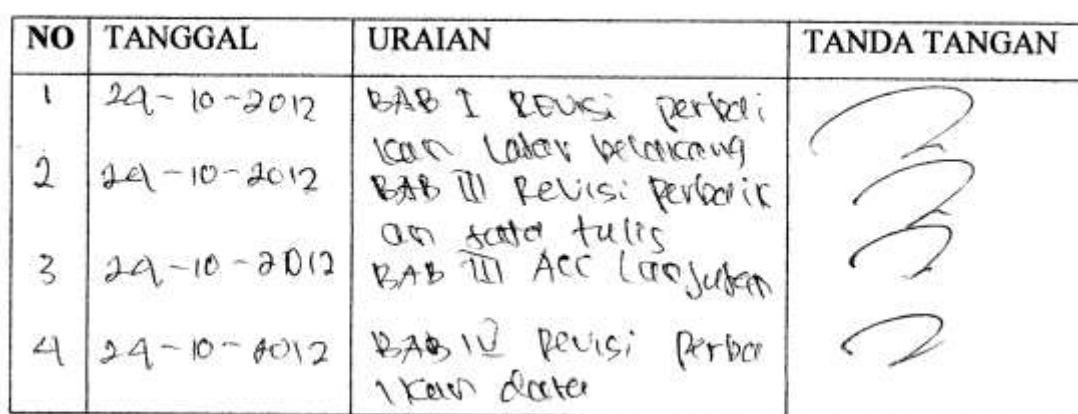 NO TANGGAL URAIAN TANDA TANGAN
1 24-10-2012 BAB I REVISI perbai
kan latar belakang
2 24-10-2012 BAB III Revisi perbaik
an tata tulis
3 24-10-2012 BAB III Acc Lanjutkan
4 24-10-2012 BAB IV Revisi Perba
ikan data